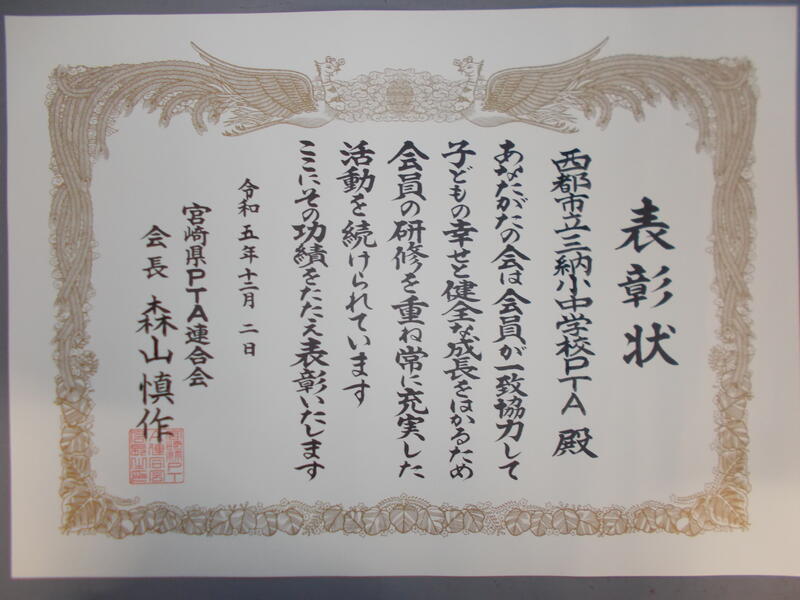 表彰状
西都市立三納小中学校PTA 殿
あなたがたの会は会員が一致協力して
子どもの幸せと健全な成長をはかるため
会員の研修を重ね常に充実した
活動を続けられています
ここにその功績をたたえ表彰いたします
令和五年十二月二日
宮崎県PTA連合会
会長 森山慎作